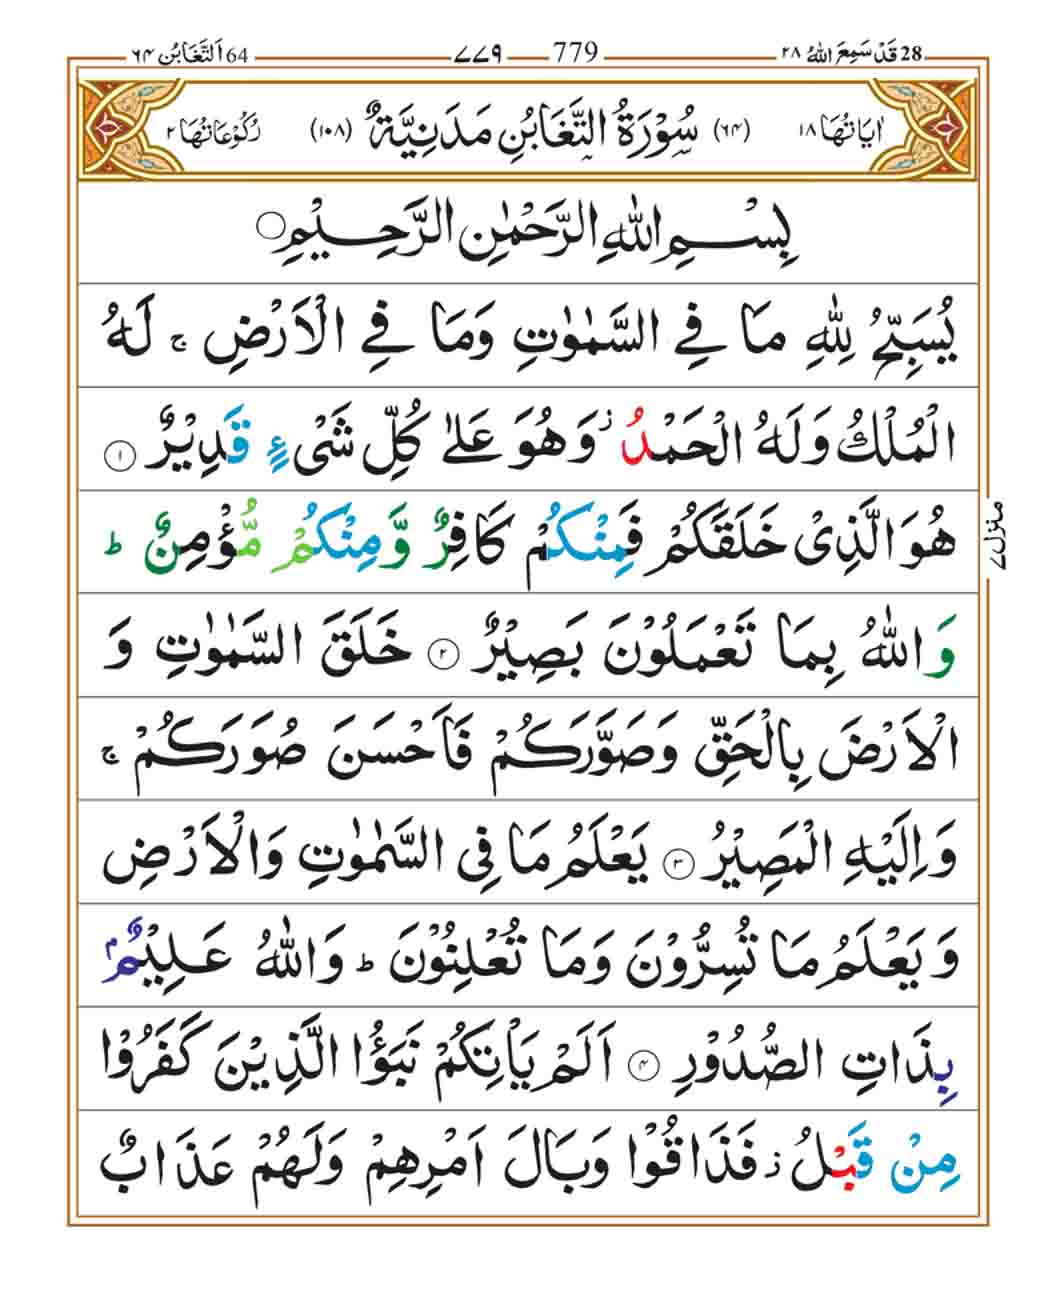 28 قَدْ سَمِعَ اللّٰهُ ۲۸ 779 ۷۷۹ 64 اَلتَّغَابُن ۶۴
اٰيَاتُهَا ۱۸ (۶۴) سُوْرَةُ التَّغَابُنِ مَدَنِيَّةٌ (۱۰۸) رُكُوْعَاتُهَا ۲
بِسْمِ اللّٰهِ الرَّحْمٰنِ الرَّحِيْمِ ۝
يُسَبِّحُ لِلّٰهِ مَا فِي السَّمٰوٰتِ وَمَا فِي الْاَرْضِ ۚ لَهُ
الْمُلْكُ وَلَهُ الْحَمْدُ ز وَهُوَ عَلٰى كُلِّ شَيْءٍ قَدِيْرٌ ۱
هُوَ الَّذِيْ خَلَقَكُمْ فَمِنْكُمْ كَافِرٌ وَّمِنْكُمْ مُّؤْمِنٌ ط
وَاللّٰهُ بِمَا تَعْمَلُوْنَ بَصِيْرٌ ۲ خَلَقَ السَّمٰوٰتِ وَ
الْاَرْضَ بِالْحَقِّ وَصَوَّرَكُمْ فَاَحْسَنَ صُوَرَكُمْ ۚ
وَاِلَيْهِ الْمَصِيْرُ ۳ يَعْلَمُ مَا فِي السَّمٰوٰتِ وَالْاَرْضِ
وَيَعْلَمُ مَا تُسِرُّوْنَ وَمَا تُعْلِنُوْنَ ط وَاللّٰهُ عَلِيْمٌۢ
بِذَاتِ الصُّدُوْرِ ۴ اَلَمْ يَاْتِكُمْ نَبَؤُا الَّذِيْنَ كَفَرُوْا
مِنْ قَبْلُ ز فَذَاقُوْا وَبَالَ اَمْرِهِمْ وَلَهُمْ عَذَابٌ
منزل ۷